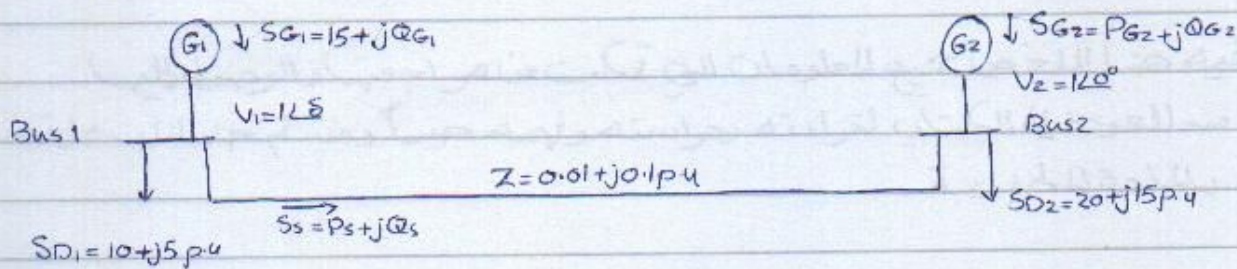 G1 ↓ SG1=15+jQG1
G2 ↓ SG2=PG2+jQG2
V1=1∠δ
V2=1∠0°
Bus1
Bus2
Z=0.01+j0.1p.u
Ss=Ps+jQs
SD2=20+j15p.u
SD1=10+j5p.u